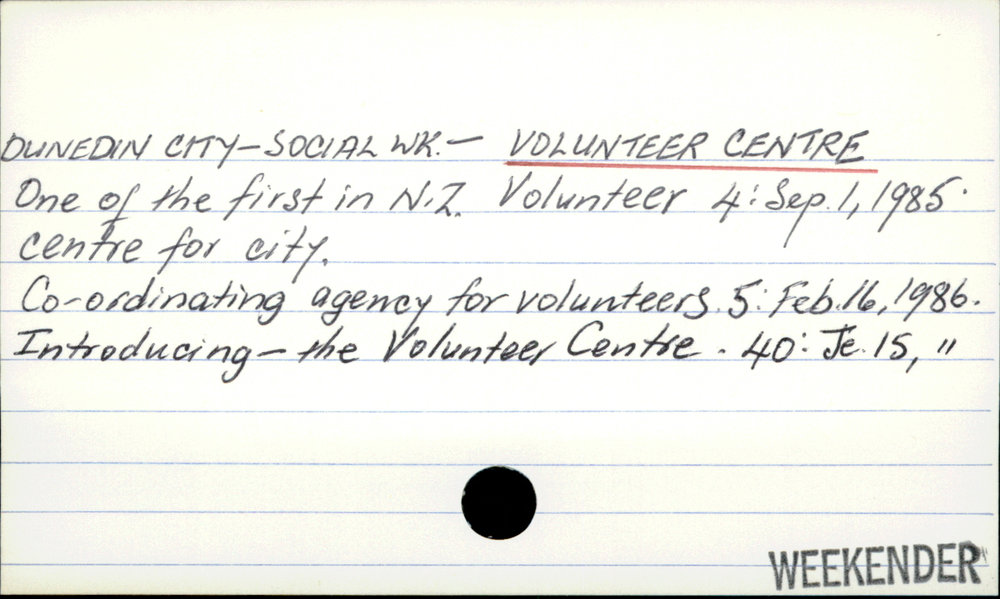 DUNEDIN CITY - SOCIAL WK. - VOLUNTEER CENTRE
One of the first in N.Z. Volunteer 4: Sep. 1, 1985.
centre for city.
Co-ordinating agency for volunteers. 5: Feb. 16, 1986.
Introducing - the Volunteer Centre. 40: Je. 15, "
WEEKENDER